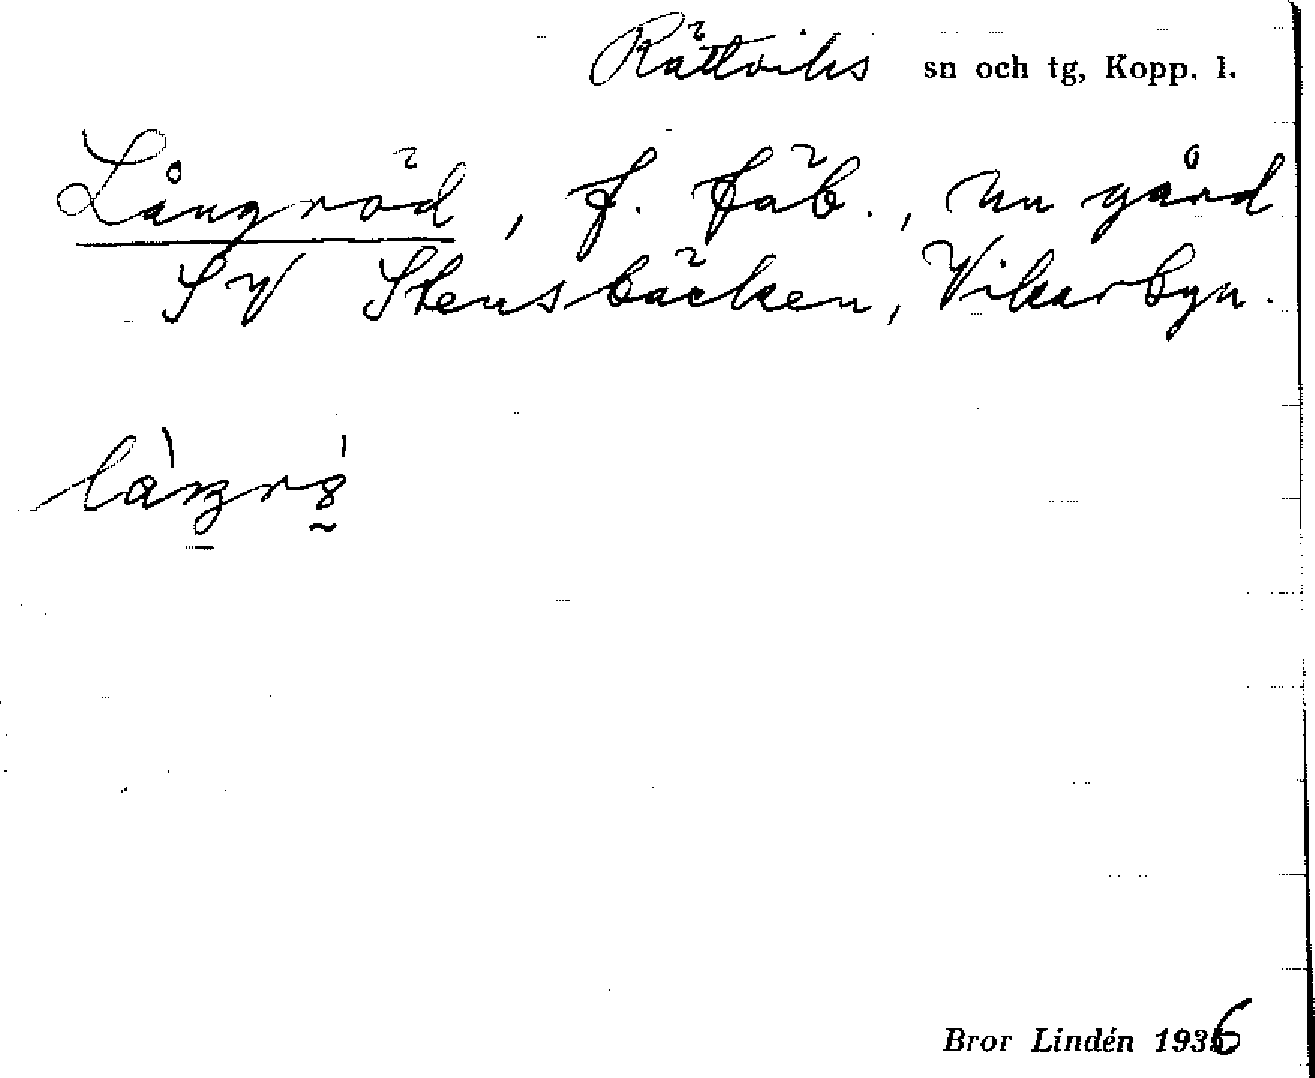 Rättviks sn och tg, Kopp. l.
Långröd, f. fäb., nu gård
SV Stensbäcken, Vikarbyn.
Bror Lindén 1936